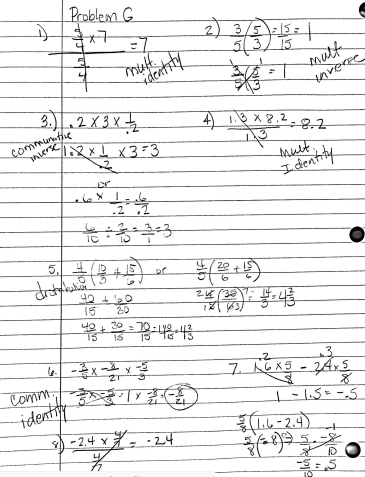 Problem G
1) 3/4 × 7 = 7
3/4
mult. identity
2) 3/5 (5/3) = 15/15 = 1
3/5 (5/3) = 1
mult inverse
3.) .2 × 3 × 1/.2
commutative inverse
1 .2 × 1/.2 × 3 = 3
or
.6 × 1/.2 = .6/.2
6/10 ÷ 2/10 = 3/1 = 3
4) 1.3 × 8.2 = 8.2
1.3
mult. Identity
5. 4/5 (10/3 + 15/6) or 4/5 (20/6 + 15/6)
distributive
40/15 + 60/30
40/15 + 30/15 = 70/15 = 4 10/15 = 4 2/3
= 14/3 = 4 2/3
6. -3/5 × -8/21 × -5/3
comm. identity
-3/5 × -5/3 = 1 × -8/21 = -8/21
7. 1.6 × 5/8 - 2.4 × 5/8
.2 .3
1 - 1.5 = -.5
5/8 (1.6 - 2.4)
5/8 (-.8) = 5/8 · -8/10
-1
-5/10 = .5
8) -2.4 × 4/7 = -24
4/7